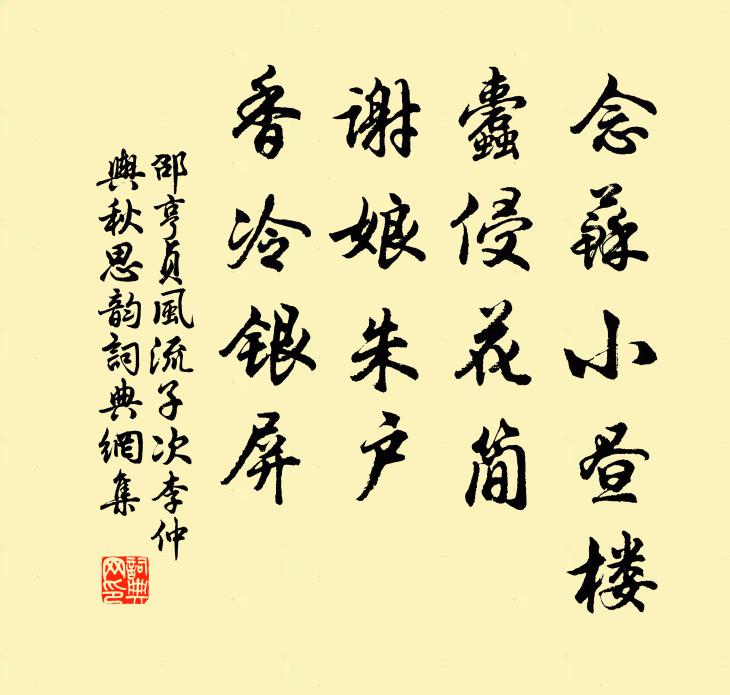 念蘇小昼楼
蠹侵花简
谢娘朱户
香冷银屏
邵亨貞風流子次李仲
興秋思韵詞典網集
詞典网印